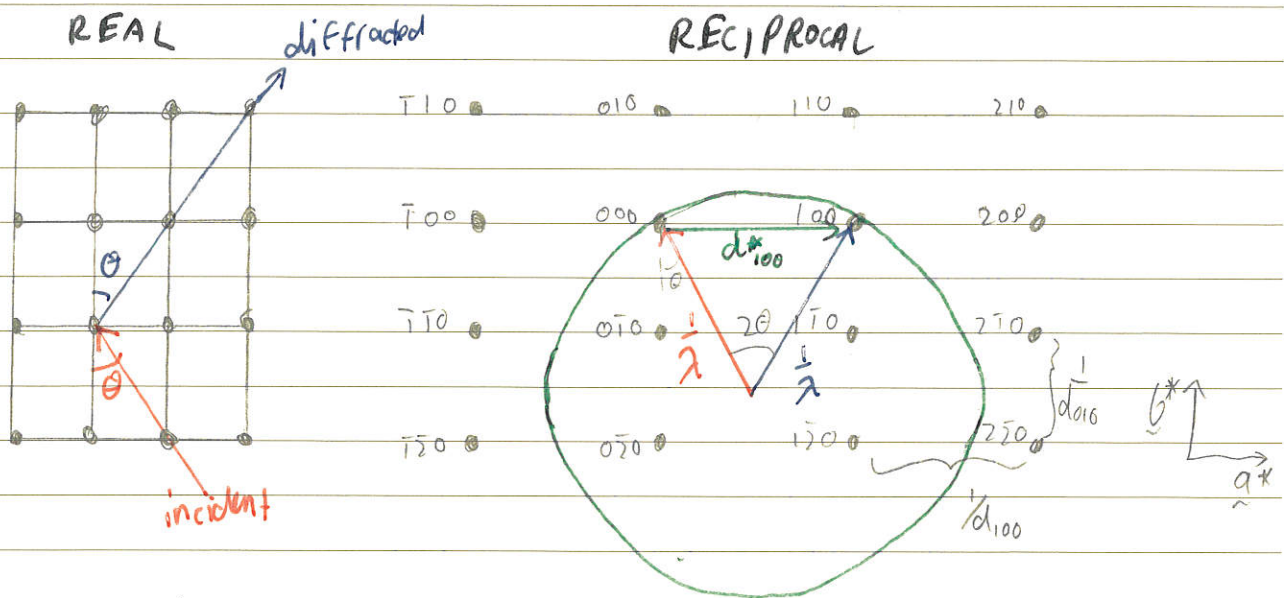 REAL
diffracted
θ
θ
incident
RECIPROCAL
1̄10 010 110 210
1̄00 000 100 200
d*100
θ
1̄1̄0 01̄0 11̄0 21̄0
1/λ 2θ 1/λ
1/d010
1̄2̄0 02̄0 12̄0 22̄0
1/d100
b*
a*